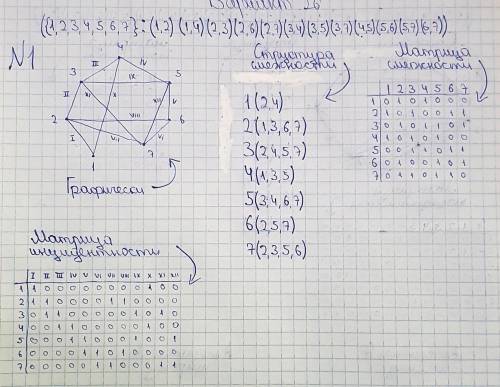 Вариант 26
({1,2,3,4,5,6,7}:(1,2)(1,4)(2,3)(2,6)(2,7)(3,4)(3,5)(3,7)(4,5)(5,6)(5,7)(6,7))
№1
4
III
IV
3
IX
5
II
XI
X
XII
V
2
VIII
6
I
VII
VI
7
1
Графически
Структура
смежности
1(2,4)
2(1,3,6,7)
3(2,4,5,7)
4(1,3,5)
5(3,4,6,7)
6(2,5,7)
7(2,3,5,6)
Матрица
смежности
1 2 3 4 5 6 7
1 0 1 0 1 0 0 0
2 1 0 1 0 0 1 1
3 0 1 0 1 1 0 1
4 1 0 1 0 1 0 0
5 0 0 1 1 0 1 1
6 0 1 0 0 1 0 1
7 0 1 1 0 1 1 0
Матрица
инцидентности
I II III IV V VI VII VIII IX X XI XII
1 1 0 0 0 0 0 0 0 0 1 0 0
2 1 1 0 0 0 0 1 1 0 0 0 0
3 0 1 1 0 0 0 0 0 1 0 1 0
4 0 0 1 1 0 0 0 0 0 1 0 0
5 0 0 0 1 1 0 0 0 1 0 0 1
6 0 0 0 0 1 1 0 1 0 0 0 0
7 0 0 0 0 0 1 1 0 0 0 1 1